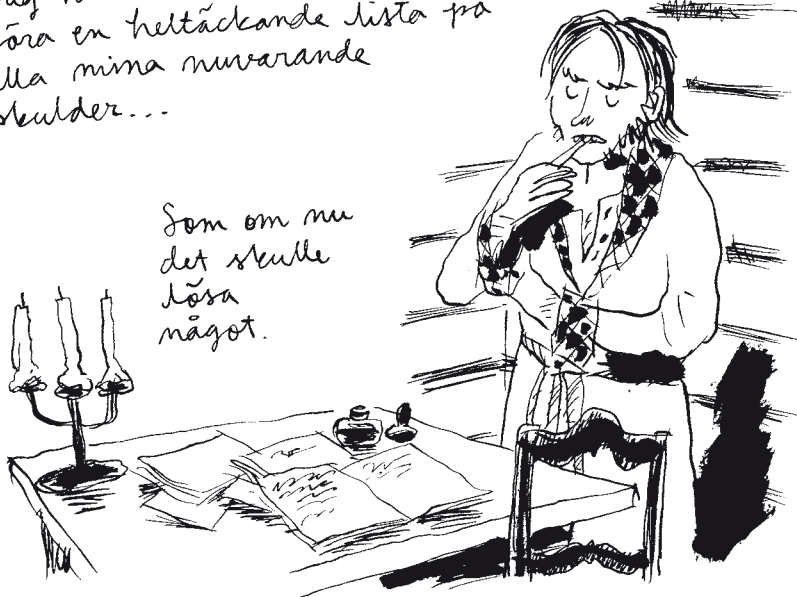 öra en heltäckande lista på
lla mina nuvarande
skulder...
Som om nu
det skulle
lösa
något.